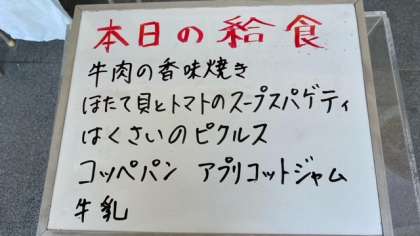 本日の給食
牛肉の香味焼き
ほたて貝とトマトのスープスパゲティ
はくさいのピクルス
コッペパン アプリコットジャム
牛乳